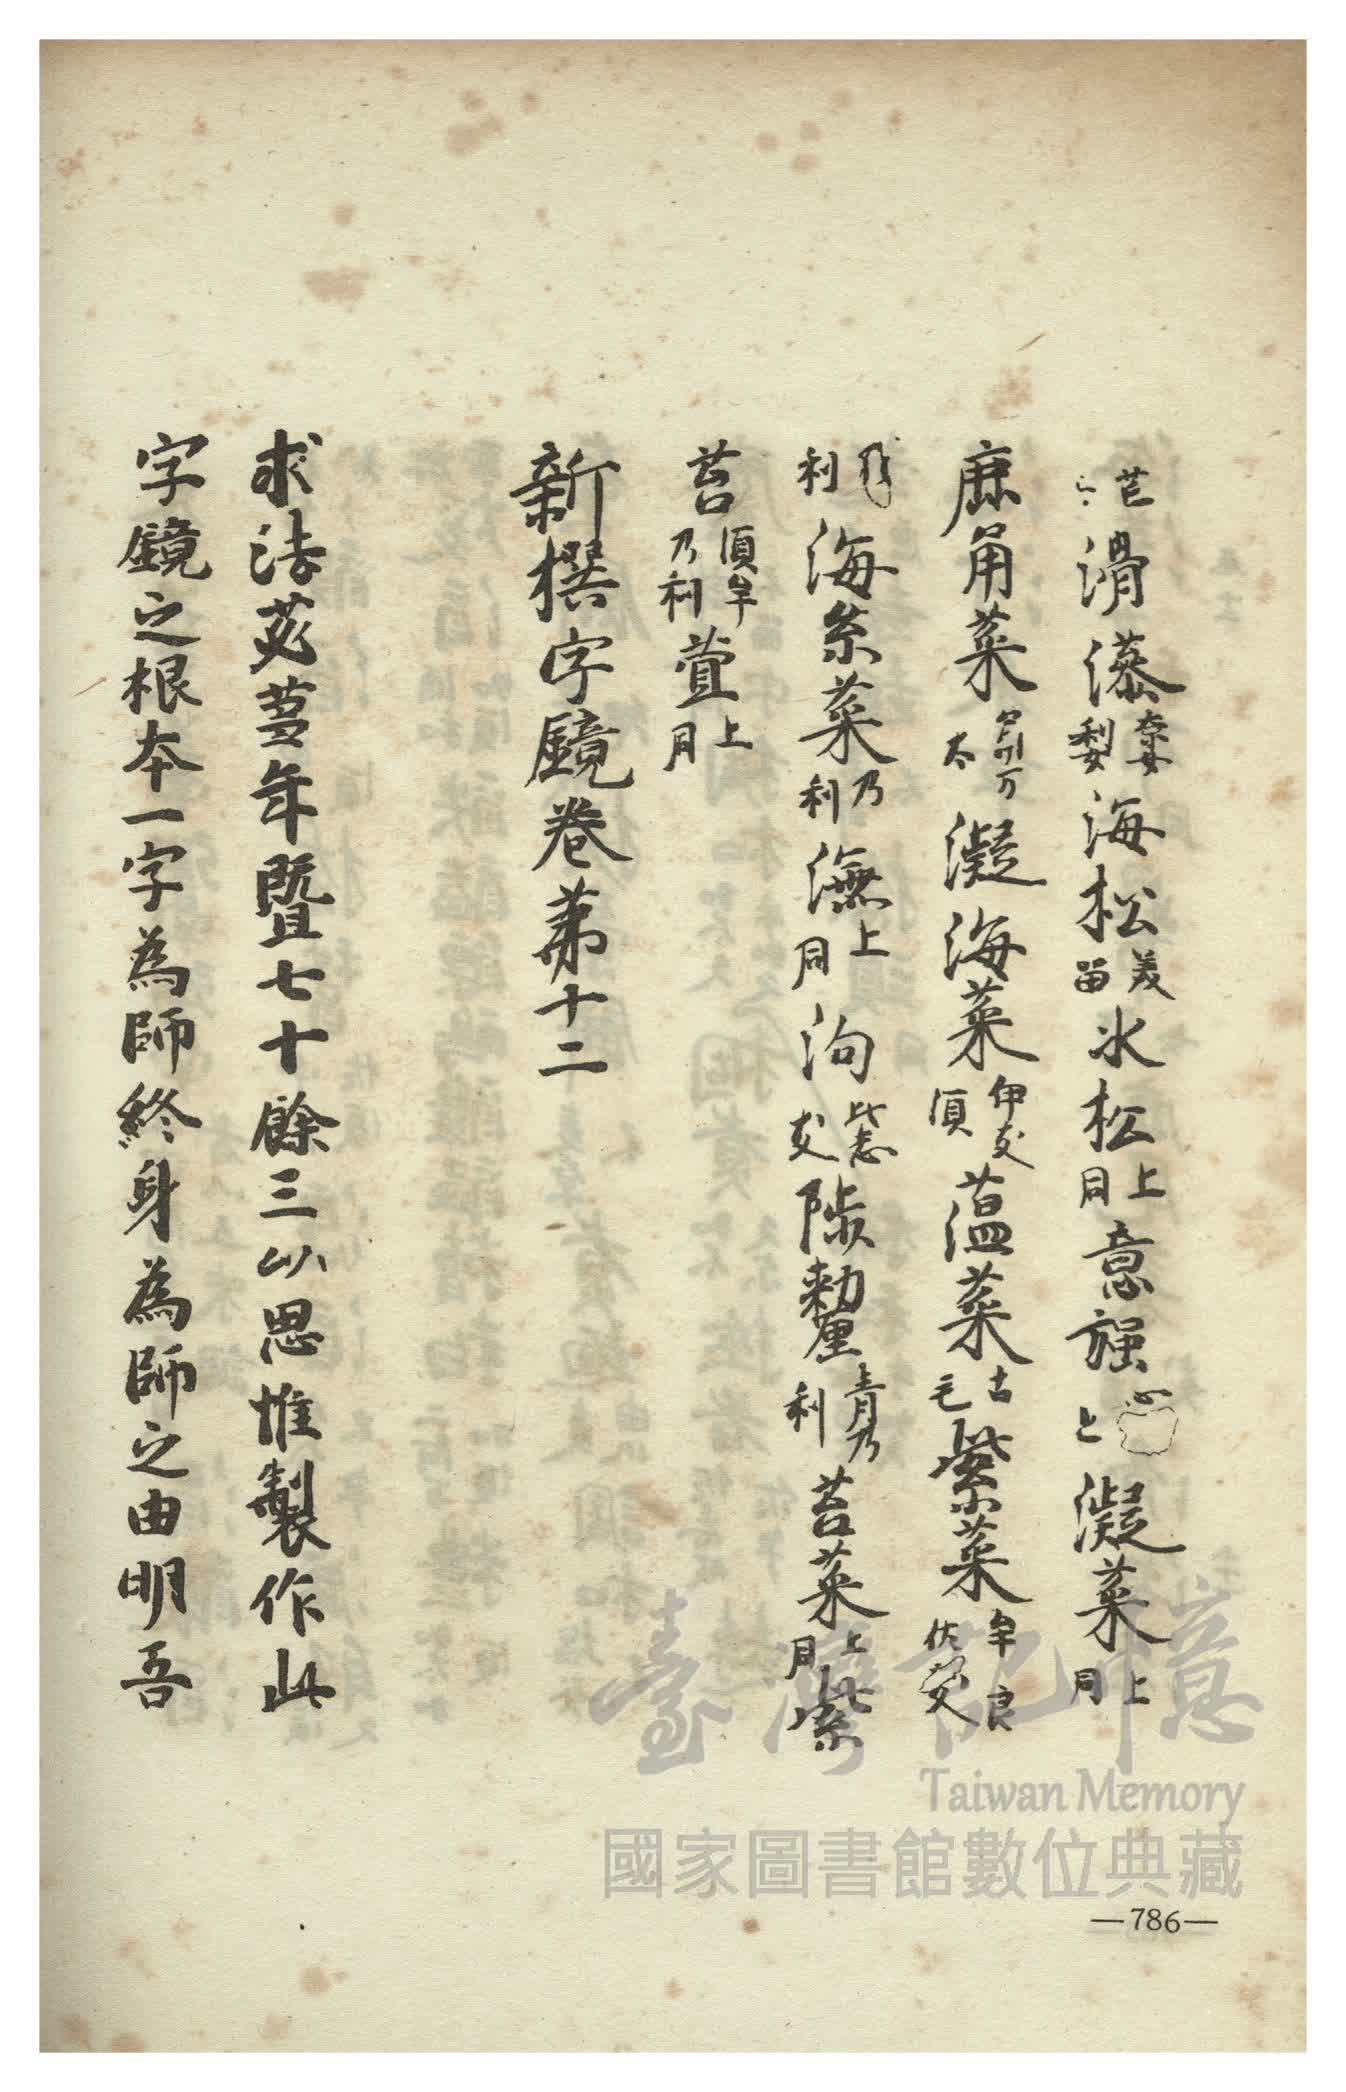 芒滑藻奈女利女海松美留氷松上同意強凝菜上同
鹿角菜不凝海菜伊支須薀菜古毛紫菜牟良
利海糸菜乃利潕上同泃支陟釐青乃利苔菜上同紫
苔須牟乃利萱上同
新撰字鏡卷第十二
求法苾蒭年暨七十餘三以思惟製作此
字鏡之根本一字為師終身為師之由明吾
臺灣記憶
Taiwan Memory
國家圖書館數位典藏
—786—